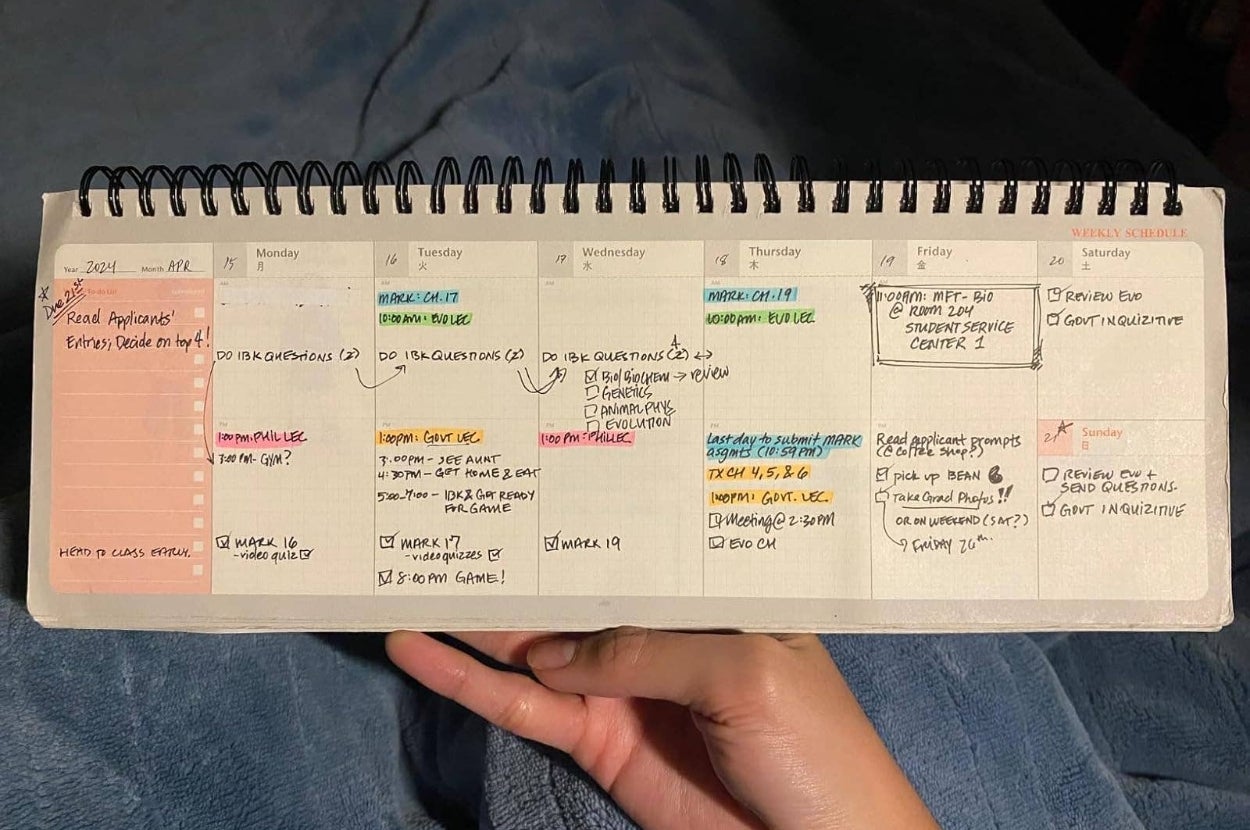 WEEKLY SCHEDULE
Year 2024 Month APR
To do List
* Due 21st
Read Applicants'
Entries; Decide on top 4!
HEAD TO CLASS EARLY.
15 Monday
月
AM
DO IBK QUESTIONS (2)
PM
1:00 PM: PHIL LEC
3:00 PM- GYM?
☑ MARK 16
- video quiz ☑
16 Tuesday
火
AM
MARK: CH. 17
10:00 AM: EVO LEC
DO IBK QUESTIONS (2)
PM
1:00PM: GOVT LEC
3:00PM- SEE AUNT
4:30PM- GET HOME & EAT
5:00-7:00- IBK & GET READY
FOR GAME
☑ MARK 17
- video quizzes ☑
☑ 8:00 PM GAME!
17 Wednesday
水
4
DO IBK QUESTIONS (2) ↔
☑ BIO/BIOCHEM → review
☐ GENETICS
☐ ANIMAL PHYS
☐ EVOLUTION
1:00 PM: PHIL LEC
☑ MARK 19
18 Thursday
木
AM
MARK: CH. 19
10:00am: EVO LEC
PM
Last day to submit MARK
asgmts (10:59 PM)
TX CH 4, 5, & 6
1:00PM: GOVT. LEC
Meeting @ 2:30PM
EVO CH
19 Friday
金
11:00AM: MFT- BIO
@ ROOM 204
STUDENT SERVICE
CENTER 1
Read applicant prompts
(@ coffee shop?)
☑ pick up BEAN
Take Grad Photos!!
OR ON WEEKEND (SAT?)
→ FRIDAY 26th.
20 Saturday
土
REVIEW EVO
GOVT INQUIZITIVE
21 Sunday
日
☐ REVIEW EVO +
SEND QUESTIONS.
GOVT INQUIZITIVE